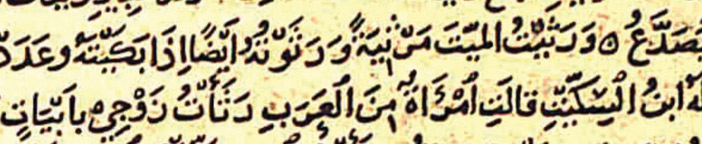 يَصَدَّعُ ٥ وَرَثَيْتُ المَيِّتَ مَرْثِيَةً وَرَثَوْتُهُ اَيْضًا اِذَا بَكَيْتَهُ وعَدَدْ
ابنُ السِكِّيتِ قالَتِ امْرَأَةٌ مِنَ العَرَبِ رَثَأْتُ زَوْجِي بِاَبْيَاتٍ